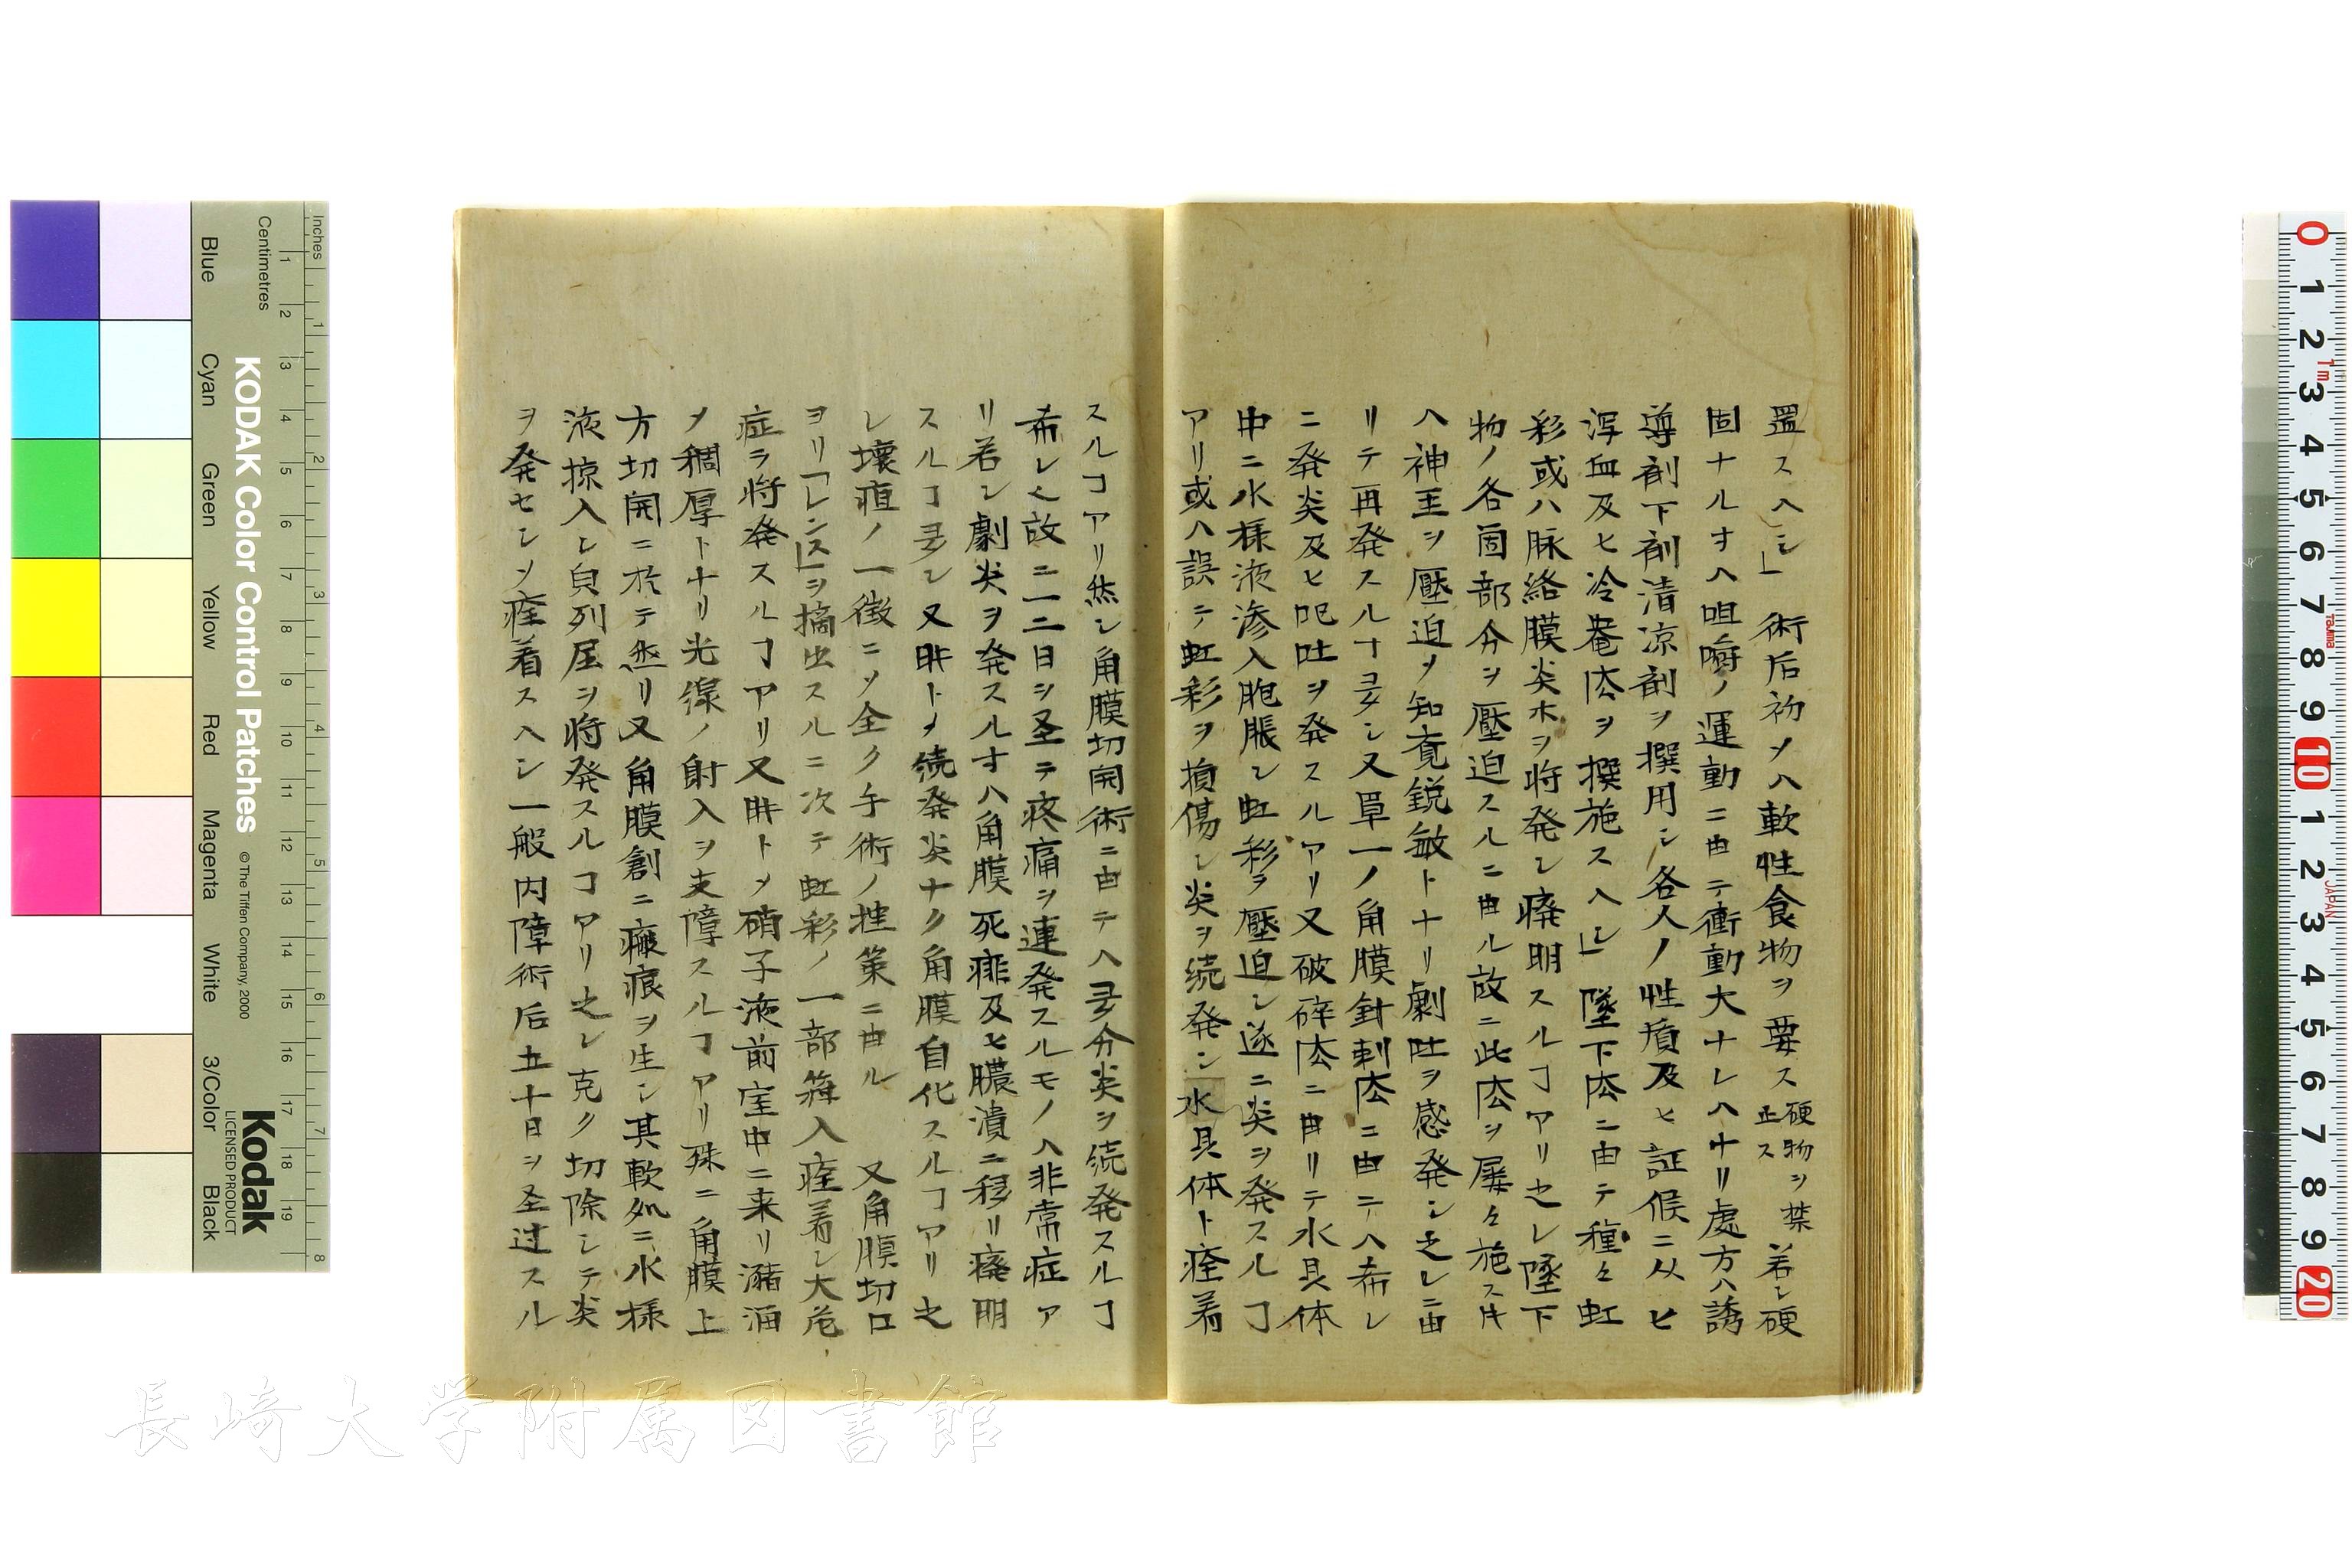 置スヘシ」 術后初メハ軟性食物ヲ要ス 硬物ヲ禁正ス 若シ硬
固ナルオハ咀嚼ノ運動ニ由テ衝動大ナレハナリ處方ハ誘
導剤下剤清凉剤ヲ撰用シ各人ノ性質及ヒ証候ニ从ヒ
瀉血及ヒ冷罨法ヲ撰施スヘシ」 墜下法ニ由テ種々虹
彩或ハ脉絡膜炎ホヲ将発シ癈明スルヿアリ之レ墜下
物ノ各箇部分ヲ壓迫スルニ由ル故ニ此法ヲ屡々施スキ
ハ神圣ヲ壓迫メ知覚鋭敏トナリ劇吐ヲ感発シ之レニ由
リテ再発スルヿ多シ又単一ノ角膜針刺法ニ由テハ希レ
ニ発炎及ヒ呕吐ヲ発スルアリ又破碎法ニ由リテ水晶体
中ニ水様液滲入胞脹シ虹彩ヲ壓迫シ遂ニ炎ヲ発スルヿ
アリ或ハ誤テ虹彩ヲ損傷シ炎ヲ続発シ水晶体ト痓着
スルヿアリ然シ角膜切開術ニ由テハ多分炎ヲ続発スルヿ
希レ也故ニ一二日ヲ圣テ疼痛ヲ連発スルモノハ非常症ア
リ若シ劇炎ヲ発スルオハ角膜死痱及ヒ膿潰ニ移リ癈明
スルヿ多シ又時トメ続発炎ナク角膜自化スルヿアリ之
レ壊疽ノ一徴ニメ全ク手術ノ拙策ニ由ル 又角膜切口
ヨリ「レンス」ヲ摘出スルニ次テ虹彩ノ一部箝入痓着シ大危
症ヲ将発スルヿアリ又時トメ硝子液前室中ニ来リ瀦溜
メ稠厚トナリ光線ノ射入ヲ支障スルヿアリ殊ニ角膜上
方切開ニ於テ然リ又角膜創ニ瘢痕ヲ生シ其軟処ニ水様
液掠入シ貟列屈ヲ将発スルヿアリ之レ克ク切除シテ炎
ヲ発セシメ痓着スヘシ一般内障術后五十日ヲ圣过スル
Inches
Centimetres
KODAK Color Control Patches
© The Tiffen Company, 2000
Kodak
LICENSED PRODUCT
Blue
Cyan
Green
Yellow
Red
Magenta
White
3/Color
Black
長崎大学附属図書館